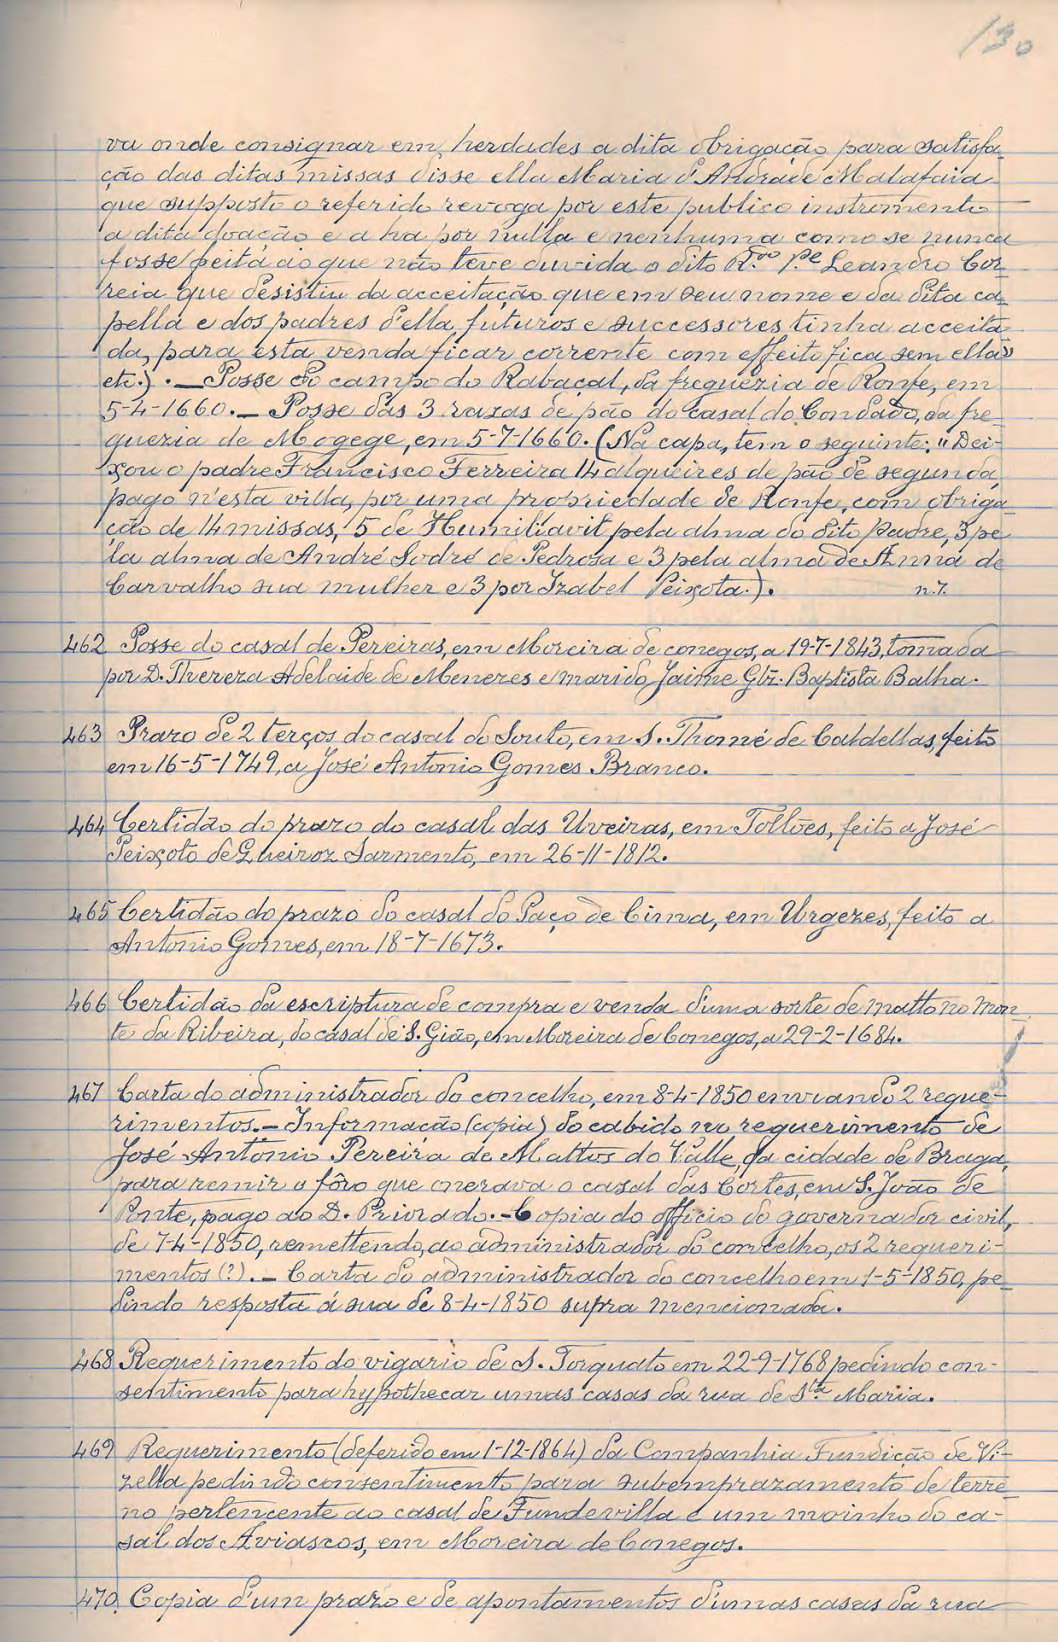 130
va onde consignar em herdades a dita obrigação para satisfa-
ção das ditas missas disse ella Maria d'Andrade Malafaia
que supposto o referido revoga por este publico instromento
a dita doação e a ha por nulla e nenhuma como se nunca
fosse feita ao que não teve duvida o dito R.do P.e Leandro Cor-
reia que desistiu da acceitação que em seu nome e da dita ca-
pella e dos padres d'ella, futuros e successores tinha acceita-
da, para esta venda ficar corrente com effeito fica sem ella»
etc.). — Posse do campo do Rabaçal, da freguezia de Ronfe, em
5-4-1660. — Posse das 3 razas de pão do casal do Condado, da fre-
guezia de Mogege, em 5-7-1660. (Na capa, tem o seguinte: "Dei-
xou o padre Francisco Ferreira 14 alqueires de pão de segunda,
pago n'esta villa, por uma propriedade de Ronfe, com obriga-
ção de 14 missas, 5 de Humiliavit pela alma do dito Padre, 3 pe-
la alma de André Sodré de Pedrosa e 3 pela alma de Anna de
Carvalho sua mulher e 3 por Izabel Peixota.). n.7.
462 Posse do casal de Pereiras, em Moreira de conegos, a 19-7-1843, tomada
por D. Thereza Adelaide de Menezes e marido Jaime Glz. Baptista Balha.
463 Prazo de 2 terços do casal do Souto, em S. Thomé de Caldellas, feito
em 16-5-1749, a José Antonio Gomes Branco.
464 Certidão do prazo do casal das Uveiras, em Tollões, feito a José
Peixoto de Queiroz Sarmento, em 26-11-1812.
465 Certidão do prazo do casal do Paço de Cima, em Urgezes, feito a
Antonio Gomes, em 18-7-1673.
466 Certidão da escriptura de compra e venda d'uma sorte de matto no Mon-
te da Ribeira, do casal de S. Gião, em Moreira de Conegos, a 29-2-1684.
467 Carta do administrador do concelho, em 8-4-1850 enviando 2 reque-
rimentos. — Informação (copia) do cabido no requerimento de
José Antonio Pereira de Mattos do Valle, da cidade de Braga,
para remir o fôro que onerava o casal das Côrtes, em S. João de
Ponte, pago ao D. Priorado. — Copia do officio do governador civil,
de 7-4-1850, remettendo, ao administrador do concelho, os 2 requeri-
mentos (?). — Carta do administrador do concelho em 1-5-1850, pe-
dindo resposta á sua de 8-4-1850 supra mencionada.
468 Requerimento do vigario de S. Torquato em 22-9-1768 pedindo con-
sentimento para hypothecar umas casas da rua de S.ta Maria.
469 Requerimento (deferido em 1-12-1864) da Companhia Fundição de Vi-
zella pedindo consentimento para subemprazamento de terre-
no pertencente ao casal de Fundevilla e um moinho do ca-
sal dos Aviascos, em Moreira de Conegos.
470 Copia d'um prazo e de apontamentos d'umas casas da rua